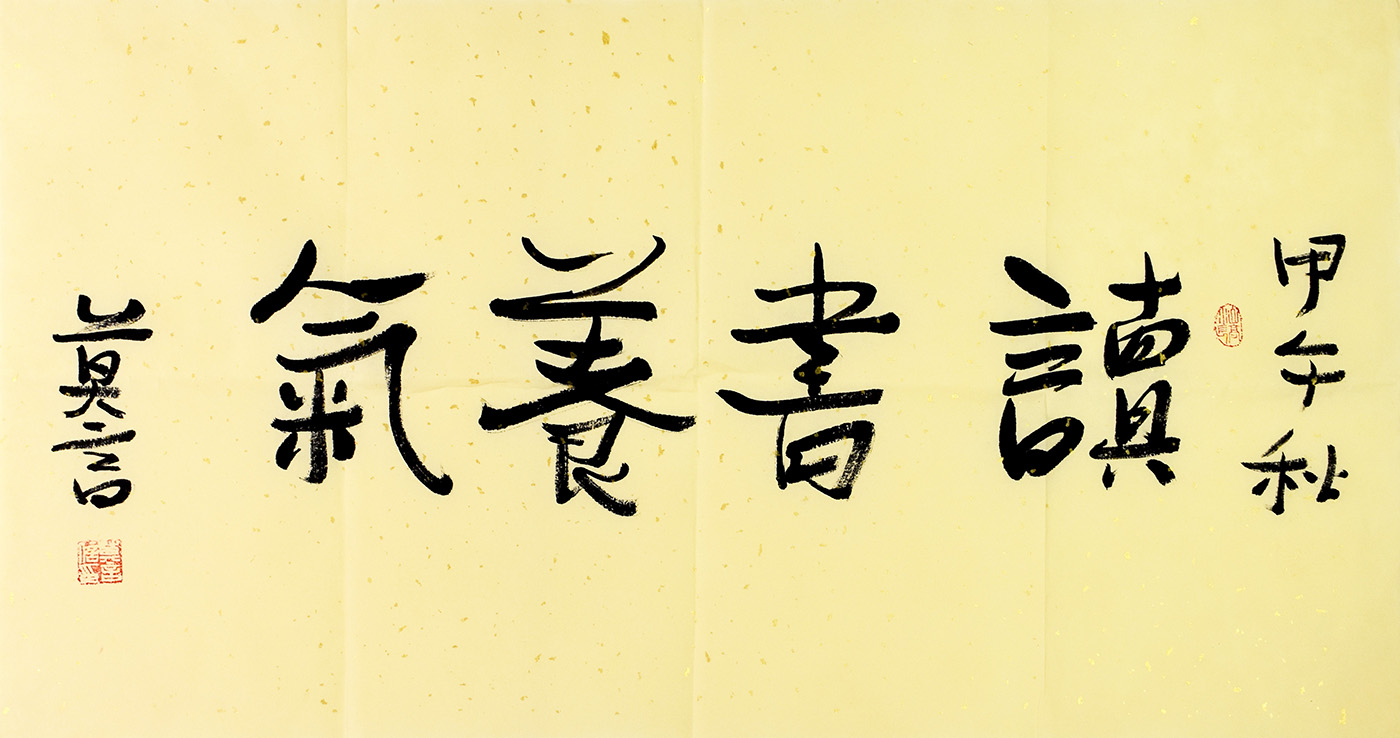 甲午秋
讀書養氣
莫言